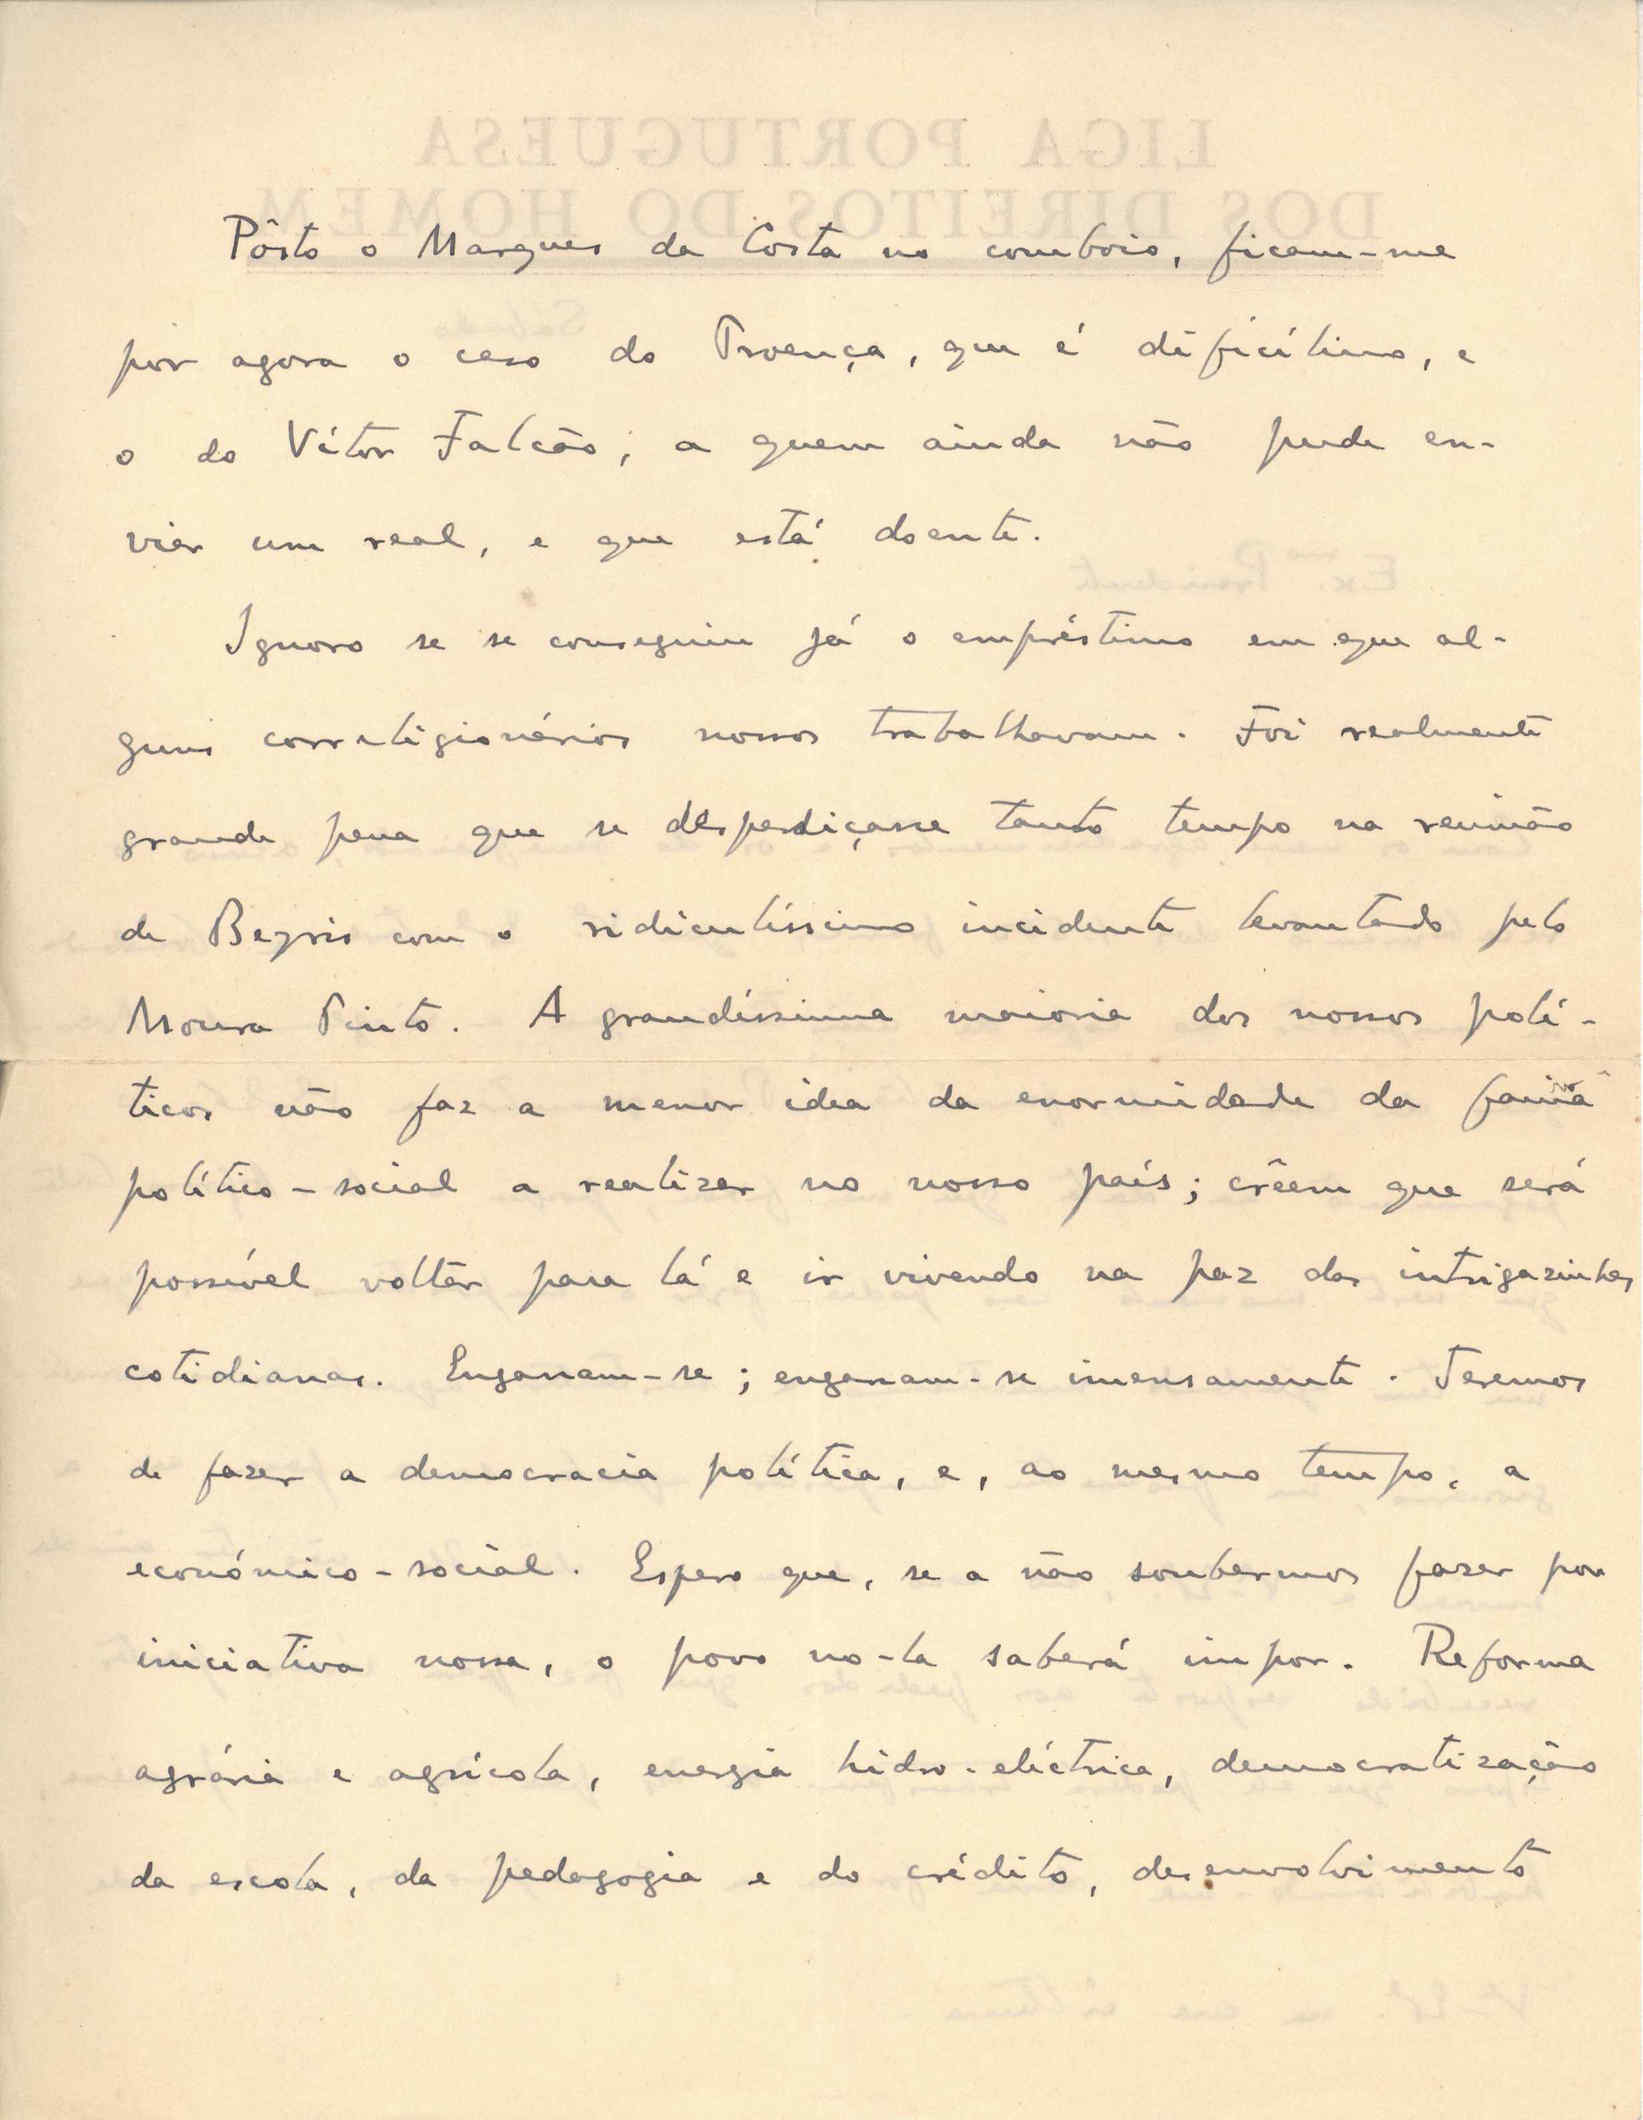 LIGA PORTUGUESA
DOS DIREITOS DO HOMEM
Pôsto o Marques da Costa no comboio, ficam-me
por agora o caso do Proença, que é dificílimo, e
o do Vítor Falcão, a quem ainda não pude en-
viar um real, e que está doente.
Ignoro se se conseguiu já o empréstimo em que al-
guns correligionários nossos trabalhavam. Foi realmente
grande pena que se desperdiçasse tanto tempo na reünião
de Beyris com o ridiculíssimo incidente levantado pelo
Moura Pinto. A grandíssima maioria dos nossos polí-
ticos não faz a menor idea da enormidade da faina
político-social a realizar no nosso país; crêem que será
possível voltar para lá e ir vivendo na paz das intrigazinhas
cotidianas. Enganam-se; enganam-se imensamente. Teremos
de fazer a democracia política, e, ao mesmo tempo, a
económico-social. Espero que, se a não soubermos fazer por
iniciativa nossa, o povo no-la saberá impor. Reforma
agrária e agrícola, energia hidro-eléctrica, democratização
da escola, da pedagogia e do crédito, desenvolvimento